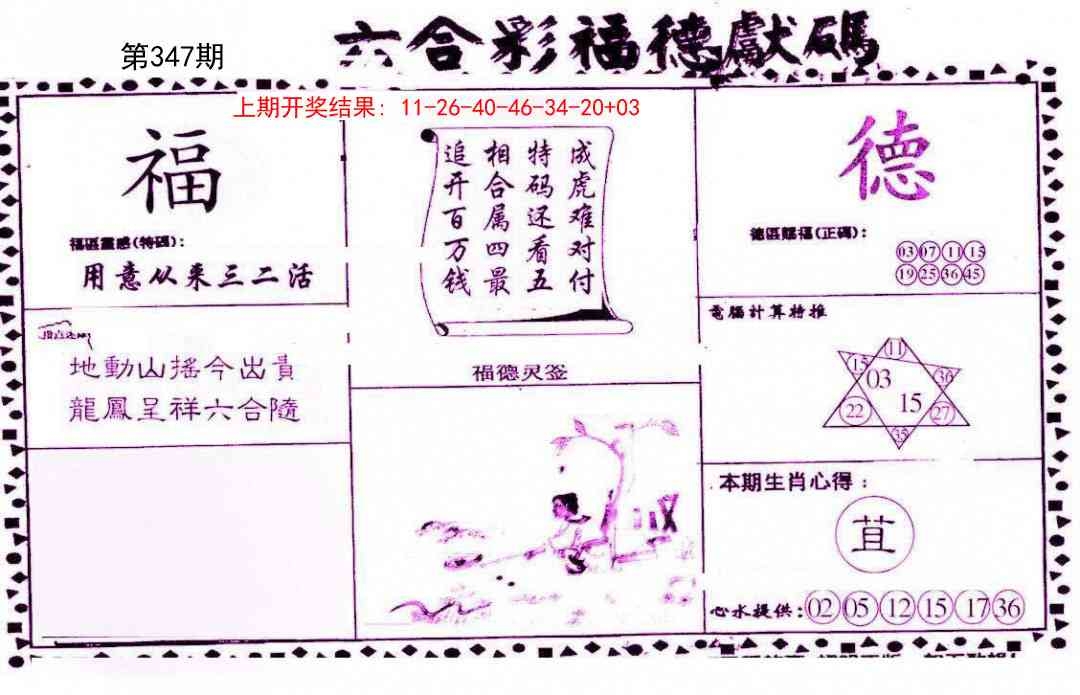 第347期
六合彩福德獻碼
上期开奖结果: 11-26-40-46-34-20+03
福
福區靈感(特碼):
用意从来三二活
地動山搖今出責
龍鳳呈祥六合隨
成虎难对付
特码还看五
相合属四最
追开百万钱
福德灵签
德
德區賜福(正碼):
03 07 11 15
19 25 36 45
電腦計算特推
11
15
36
03
15
22
27
35
本期生肖心得:
苴
心水提供: 02 05 12 15 17 36